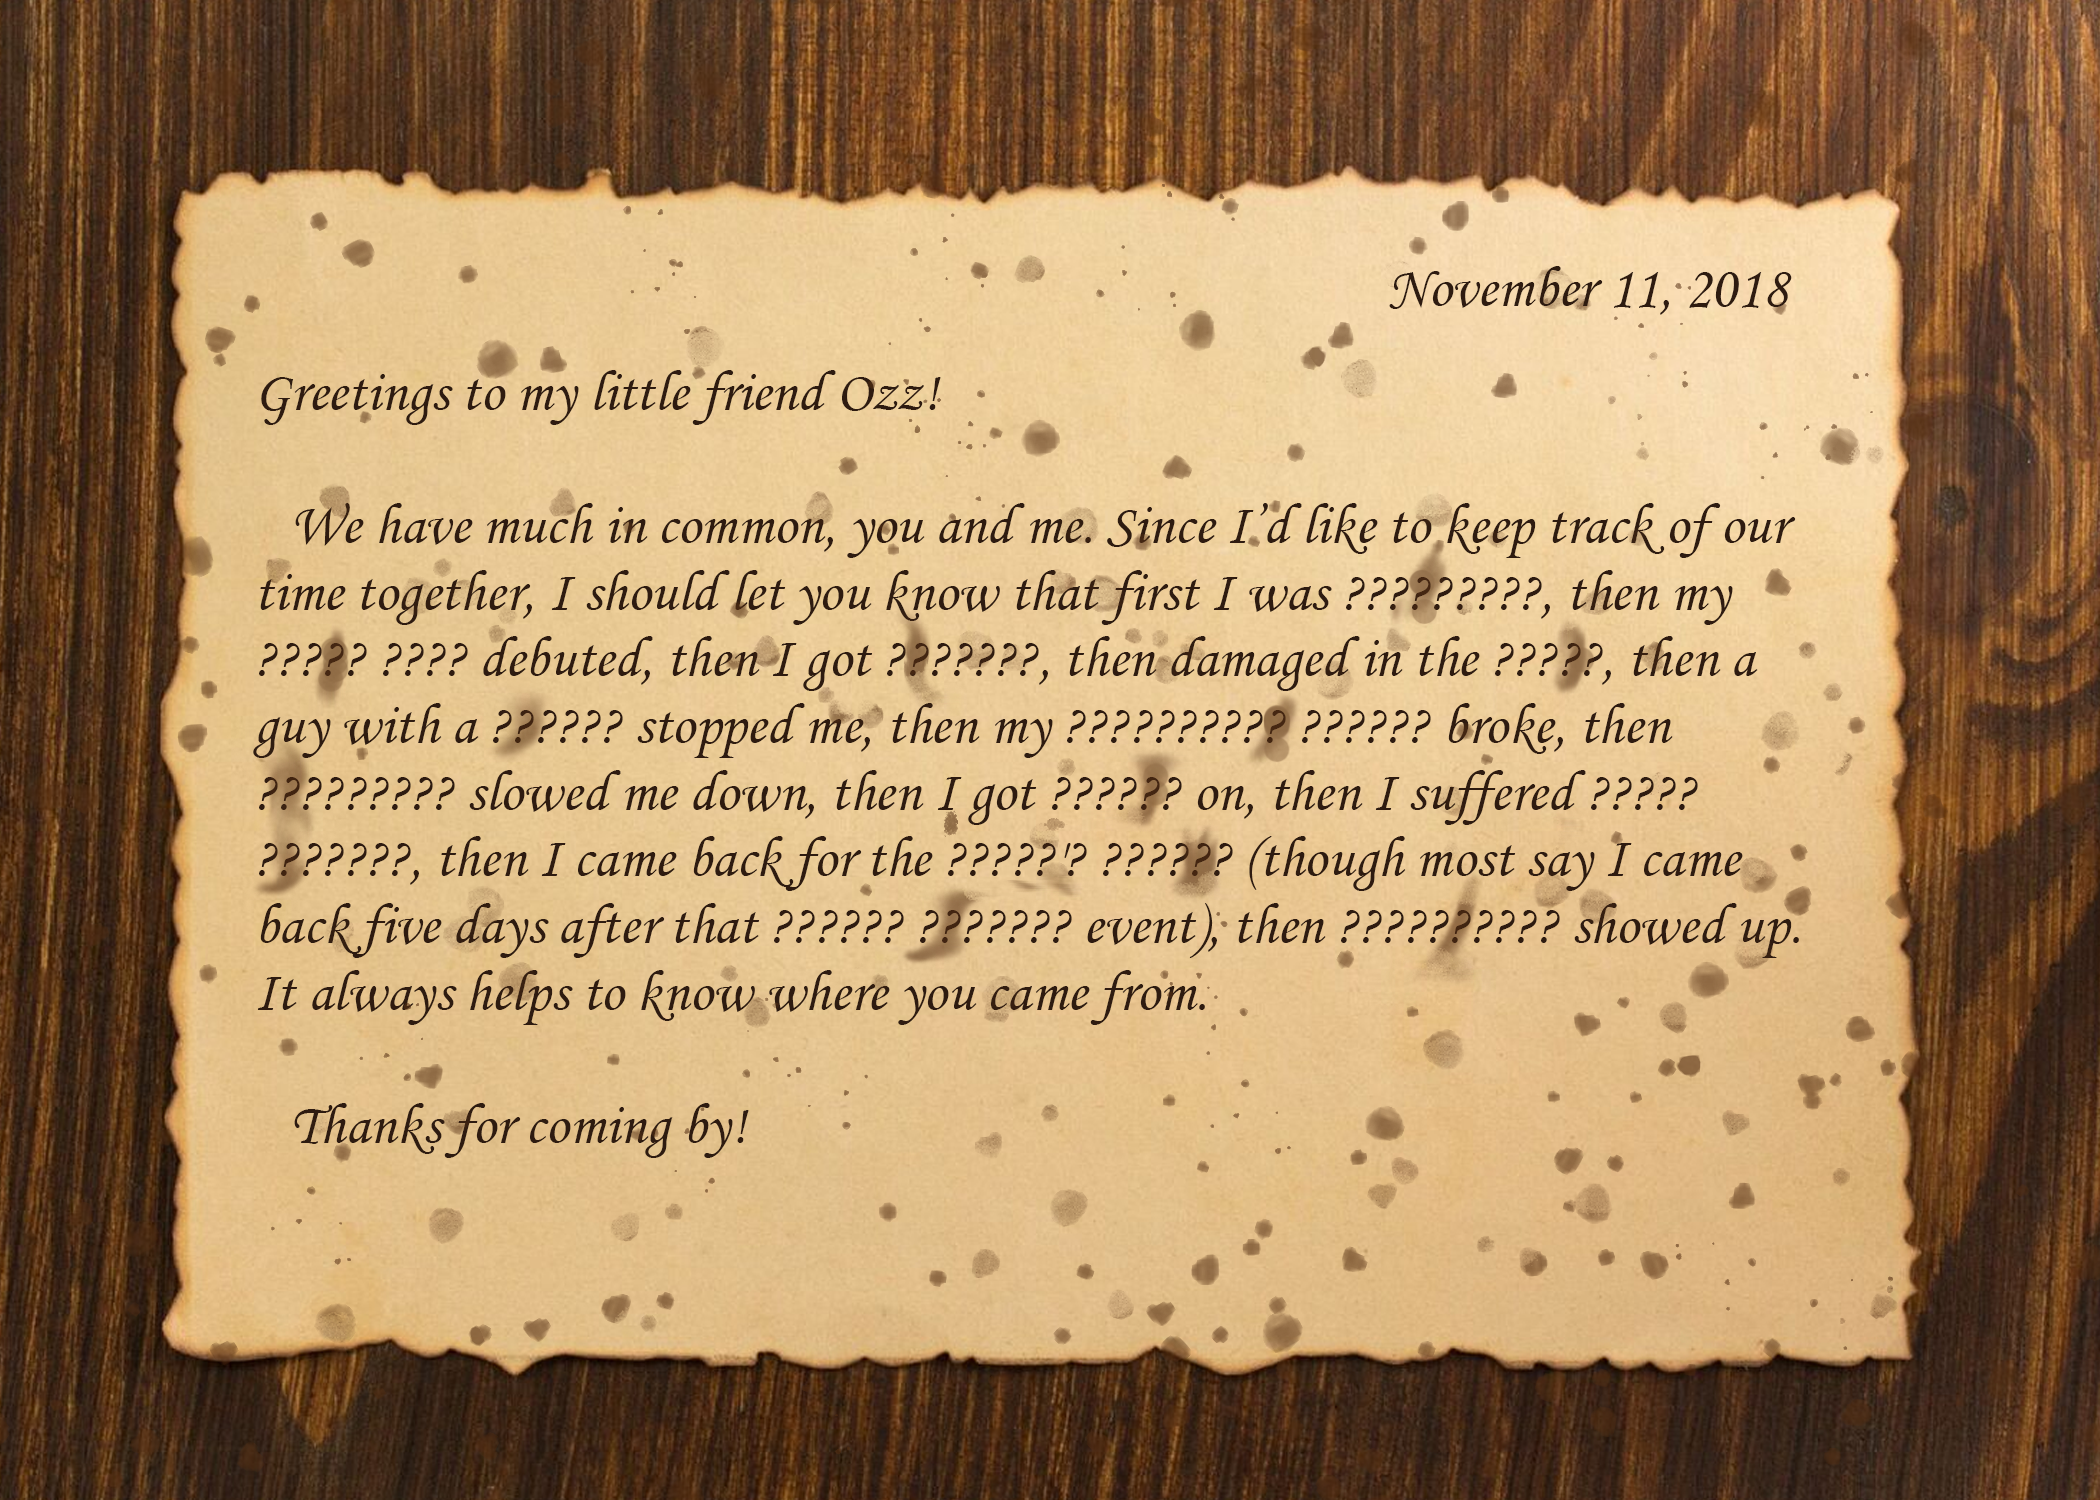 November 11, 2018
Greetings to my little friend Ozz!
We have much in common, you and me. Since I’d like to keep track of our
time together, I should let you know that first I was ?????????, then my
????? ???? debuted, then I got ???????, then damaged in the ?????, then a
guy with a ?????? stopped me, then my ?????????? ?????? broke, then
????????? slowed me down, then I got ?????? on, then I suffered ?????
???????, then I came back for the ?????'? ?????? (though most say I came
back five days after that ?????? ??????? event), then ?????????? showed up.
It always helps to know where you came from.
Thanks for coming by!